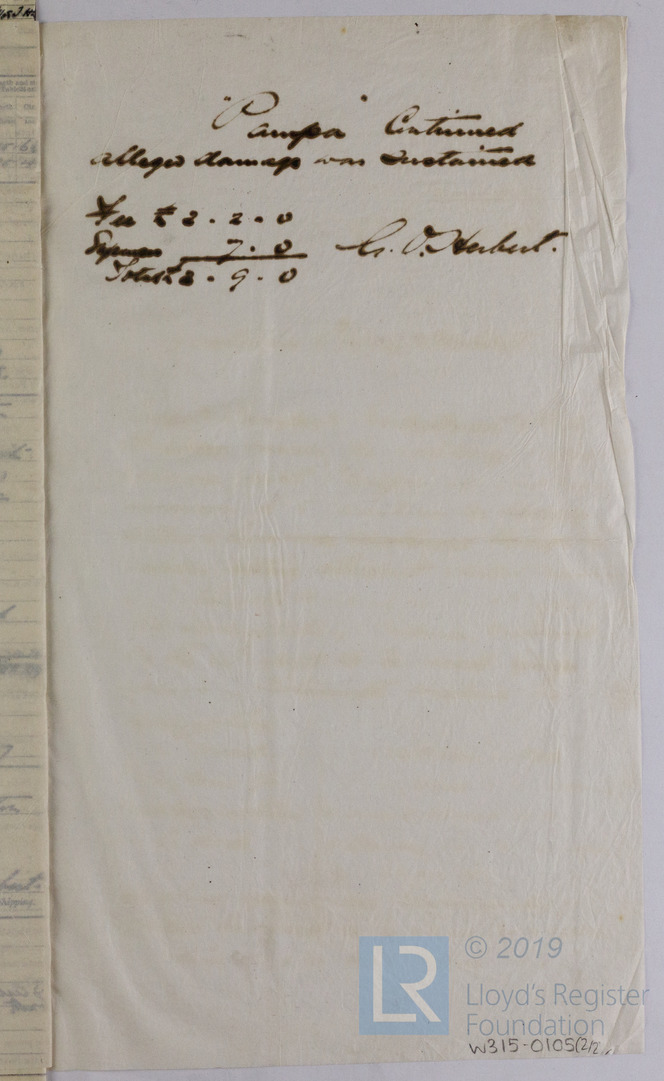 "Pampa" Continued
alleged damage was sustained
Fee £ 2 . 2 . 0
Expenses 7 . 0 G. O. Herbert.
Total £ 2 . 9 . 0
© 2019
LR
Lloyd's Register
Foundation
W315-0105(2/2)